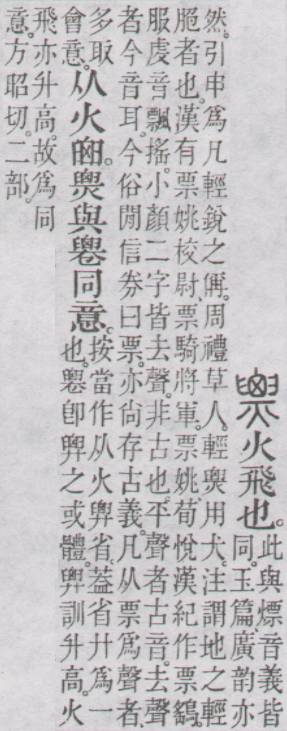 火飛也。此與熛音義皆
同。玉篇、廣韵亦
然。引申爲凡輕銳之偁。周禮草人。輕𤐫用犬。注謂地之輕
脃者也。漢有票姚校尉、票騎將軍。票姚、荀悅漢紀作票鷂。
服虔音飄搖。小顏二字皆去聲。非古也。平聲者古音。去聲
者今音耳。今俗閒信券曰票。亦尙存古義。凡从票爲聲者、
多取
會意。
从火。𤐫與䙴同意。
按當作从火𢍱省。葢省廾爲一
也。䙴卽𢍱之或體。𢍱訓升高。火
飛亦升高。故爲同
意。方昭切。二部。